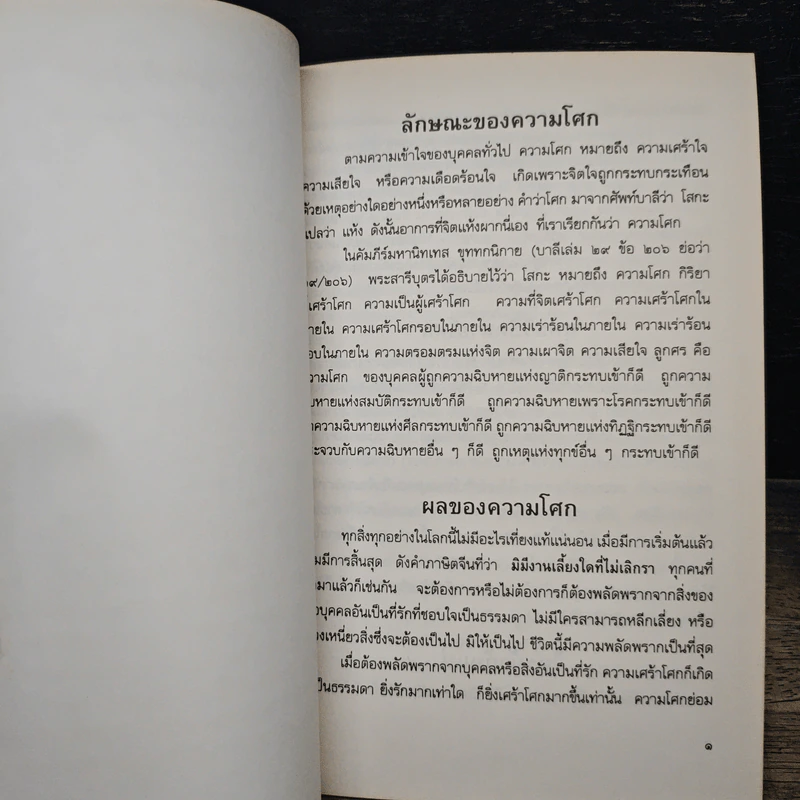 ลักษณะของความโศก
ตามความเข้าใจของบุคคลทั่วไป ความโศก หมายถึง ความเศร้าใจ
ความเสียใจ หรือความเดือดร้อนใจ เกิดเพราะจิตใจถูกกระทบกระเทือน
ด้วยเหตุอย่างใดอย่างหนึ่งหรือหลายอย่าง คำว่าโศก มาจากศัพท์บาลีว่า โสกะ
แปลว่า แห้ง ดังนั้นอาการที่จิตแห้งผากนี่เอง ที่เราเรียกกันว่า ความโศก
ในคัมภีร์มหานิทเทส ขุททกนิกาย (บาลีเล่ม ๒๙ ข้อ ๒๐๖ ย่อว่า
๒๙/๒๐๖) พระสารีบุตรได้อธิบายไว้ว่า โสกะ หมายถึง ความโศก กิริยา
เศร้าโศก ความเป็นผู้เศร้าโศก ความที่จิตเศร้าโศก ความเศร้าโศกใน
ภายใน ความเศร้าโศกรอบในภายใน ความเร่าร้อนในภายใน ความเร่าร้อน
รอบในภายใน ความตรอมตรมแห่งจิต ความเผาจิต ความเสียใจ ลูกศร คือ
ความโศก ของบุคคลผู้ถูกความฉิบหายแห่งญาติกระทบเข้าก็ดี ถูกความ
ฉิบหายแห่งสมบัติกระทบเข้าก็ดี ถูกความฉิบหายเพราะโรคกระทบเข้าก็ดี
ถูกความฉิบหายแห่งศีลกระทบเข้าก็ดี ถูกความฉิบหายแห่งทิฏฐิกระทบเข้าก็ดี
ประจวบกับความฉิบหายอื่น ๆ ก็ดี ถูกเหตุแห่งทุกข์อื่น ๆ กระทบเข้าก็ดี
ผลของความโศก
ทุกสิ่งทุกอย่างในโลกนี้ไม่มีอะไรเที่ยงแท้แน่นอน เมื่อมีการเริ่มต้นแล้ว
มีการสิ้นสุด ดังคำภาษิตจีนที่ว่า มิมีงานเลี้ยงใดที่ไม่เลิกรา ทุกคนที่
มาแล้วก็เช่นกัน จะต้องการหรือไม่ต้องการก็ต้องพลัดพรากจากสิ่งของ
บุคคลอันเป็นที่รักที่ชอบใจเป็นธรรมดา ไม่มีใครสามารถหลีกเลี่ยง หรือ
หน่วงเหนี่ยวสิ่งซึ่งจะต้องเป็นไป มิให้เป็นไป ชีวิตนี้มีความพลัดพรากเป็นที่สุด
เมื่อต้องพลัดพรากจากบุคคลหรือสิ่งอันเป็นที่รัก ความเศร้าโศกก็เกิด
เป็นธรรมดา ยิ่งรักมากเท่าใด ก็ยิ่งเศร้าโศกมากขึ้นเท่านั้น ความโศกย่อม
๑